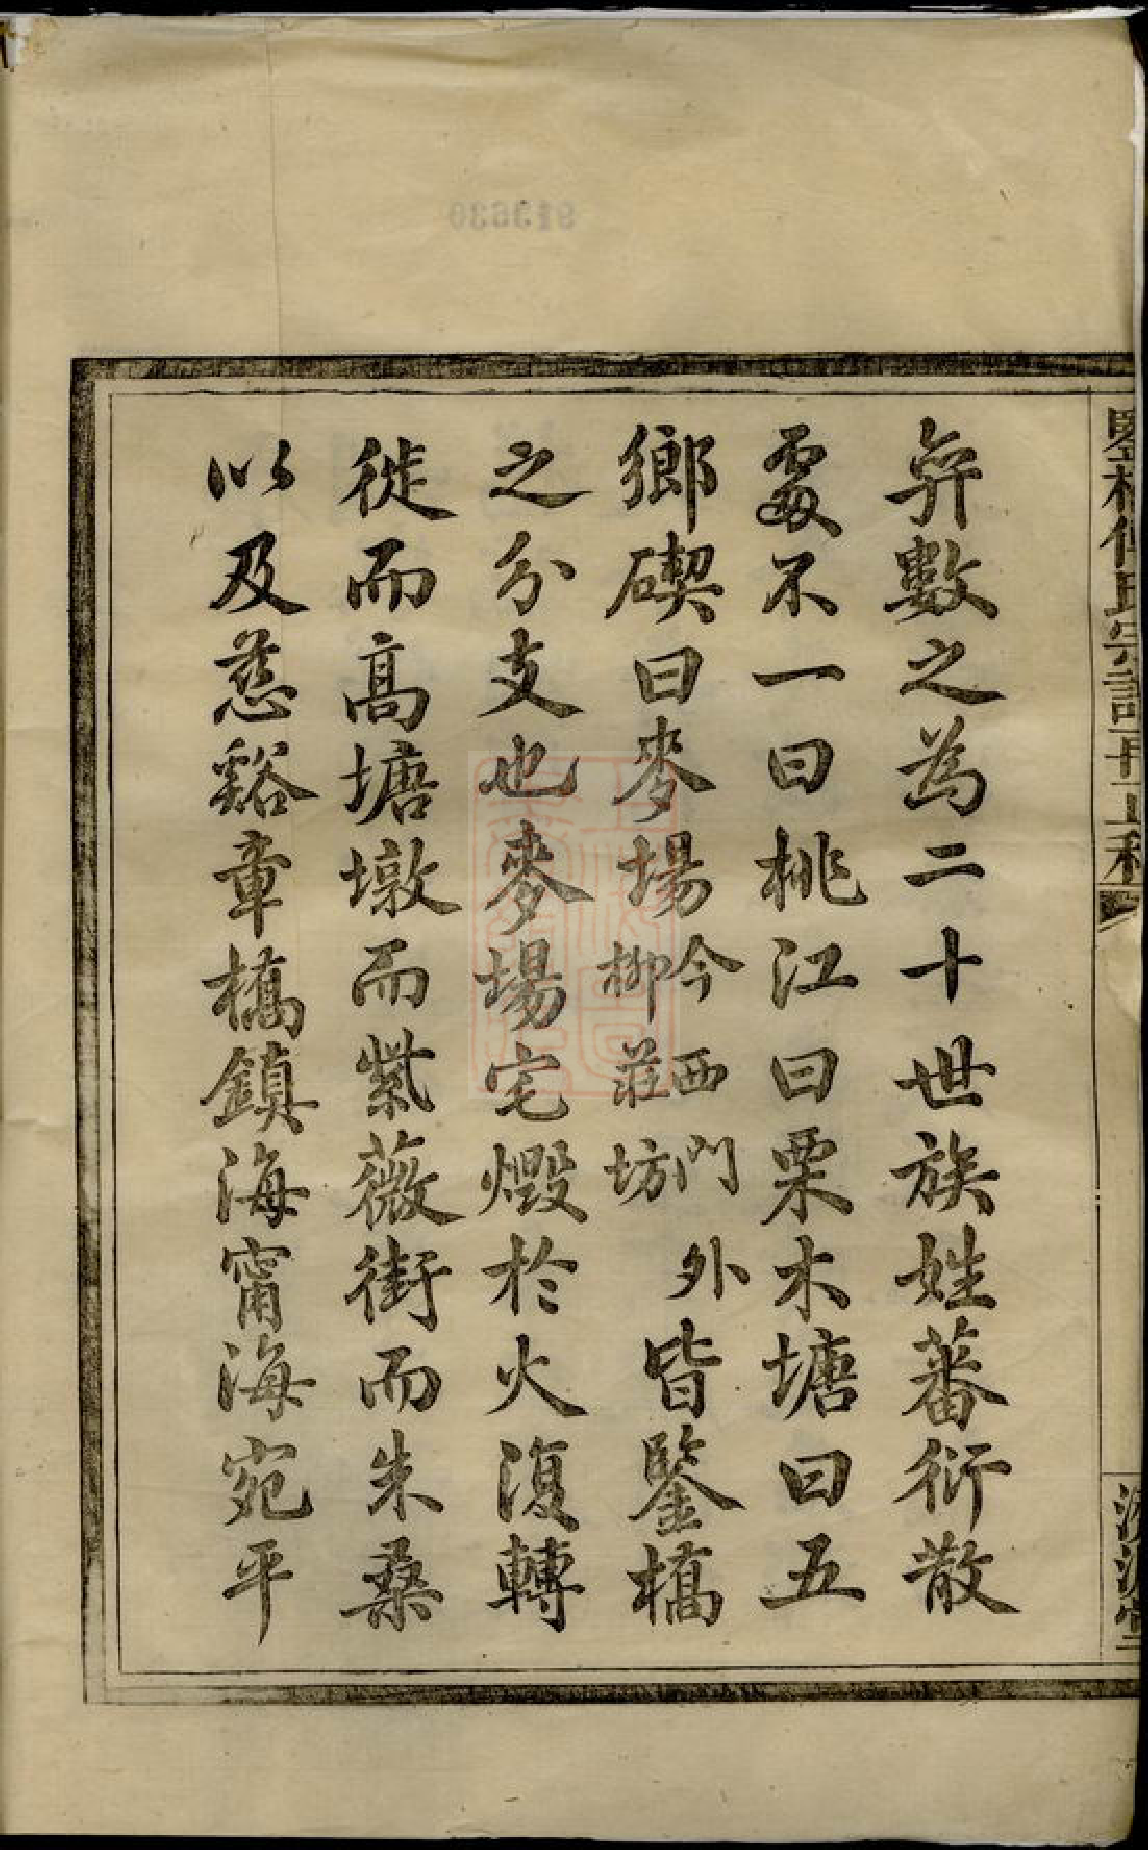 弈數之為二十世族姓蕃衍散
處不一曰桃江曰栗木塘曰五
鄉碶曰麥場今西門外柳莊坊皆鑒橋
之分支也麥場宅燬於火復轉
徙而高塘墩而紫薇街而朱桑
以及慈谿章橋鎮海甯海宛平